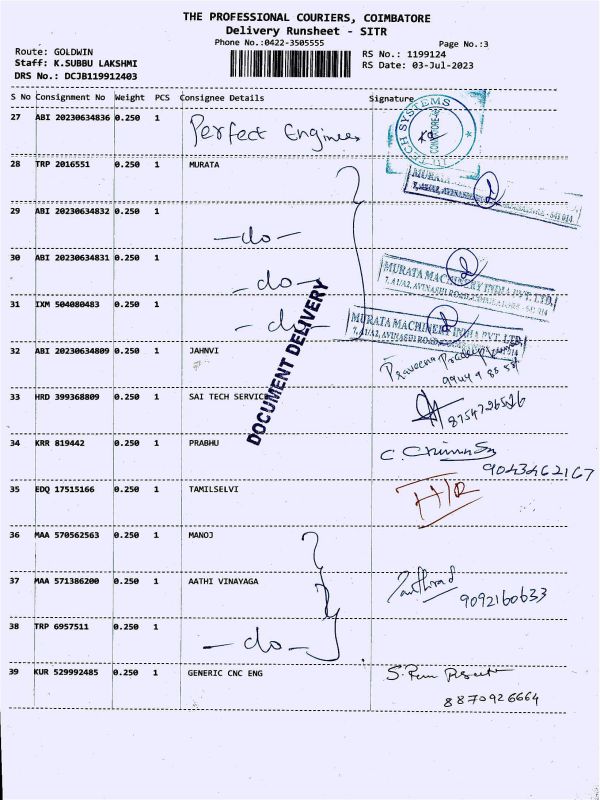 THE PROFESSIONAL COURIERS, COIMBATORE
Delivery Runsheet - SITR
Phone No.:0422-3505555
Page No.:3
Route: GOLDWIN
RS No.: 1199124
Staff: K.SUBBU LAKSHMI
RS Date: 03-Jul-2023
DRS No.: DCJB119912403
S No Consignment No Weight PCS Consignee Details Signature
27 ABI 20230634836 0.250 1 Perfect Engineers
TECH SYSTEMS
28 TRP 2016551 0.250 1 MURATA
MURATA
7, A1/A2, AVINASHI
29 ABI 20230634832 0.250 1
-do-
30 ABI 20230634831 0.250 1
-do-
MURATA MACHINERY INDIA PVT. LTD.
7, A1/A2, AVINASHI ROAD, COIMBATORE - 641 014
31 IXM 504080483 0.250 1
-do-
MURATA MACHINERY INDIA PVT. LTD.
7, A1/A2, AVINASHI ROAD, COIMBATORE - 641 014
DOCUMENT DELIVERY
32 ABI 20230634809 0.250 1 JAHNVI
Praveena
33 HRD 399368809 0.250 1 SAI TECH SERVICE
34 KRR 819442 0.250 1 PRABHU
9043462167
35 EDQ 17515166 0.250 1 TAMILSELVI
H/R
36 MAA 570562563 0.250 1 MANOJ
37 MAA 571386200 0.250 1 AATHI VINAYAGA
9092160633
38 TRP 6957511 0.250 1
-do-
39 KUR 529992485 0.250 1 GENERIC CNC ENG
8870926664